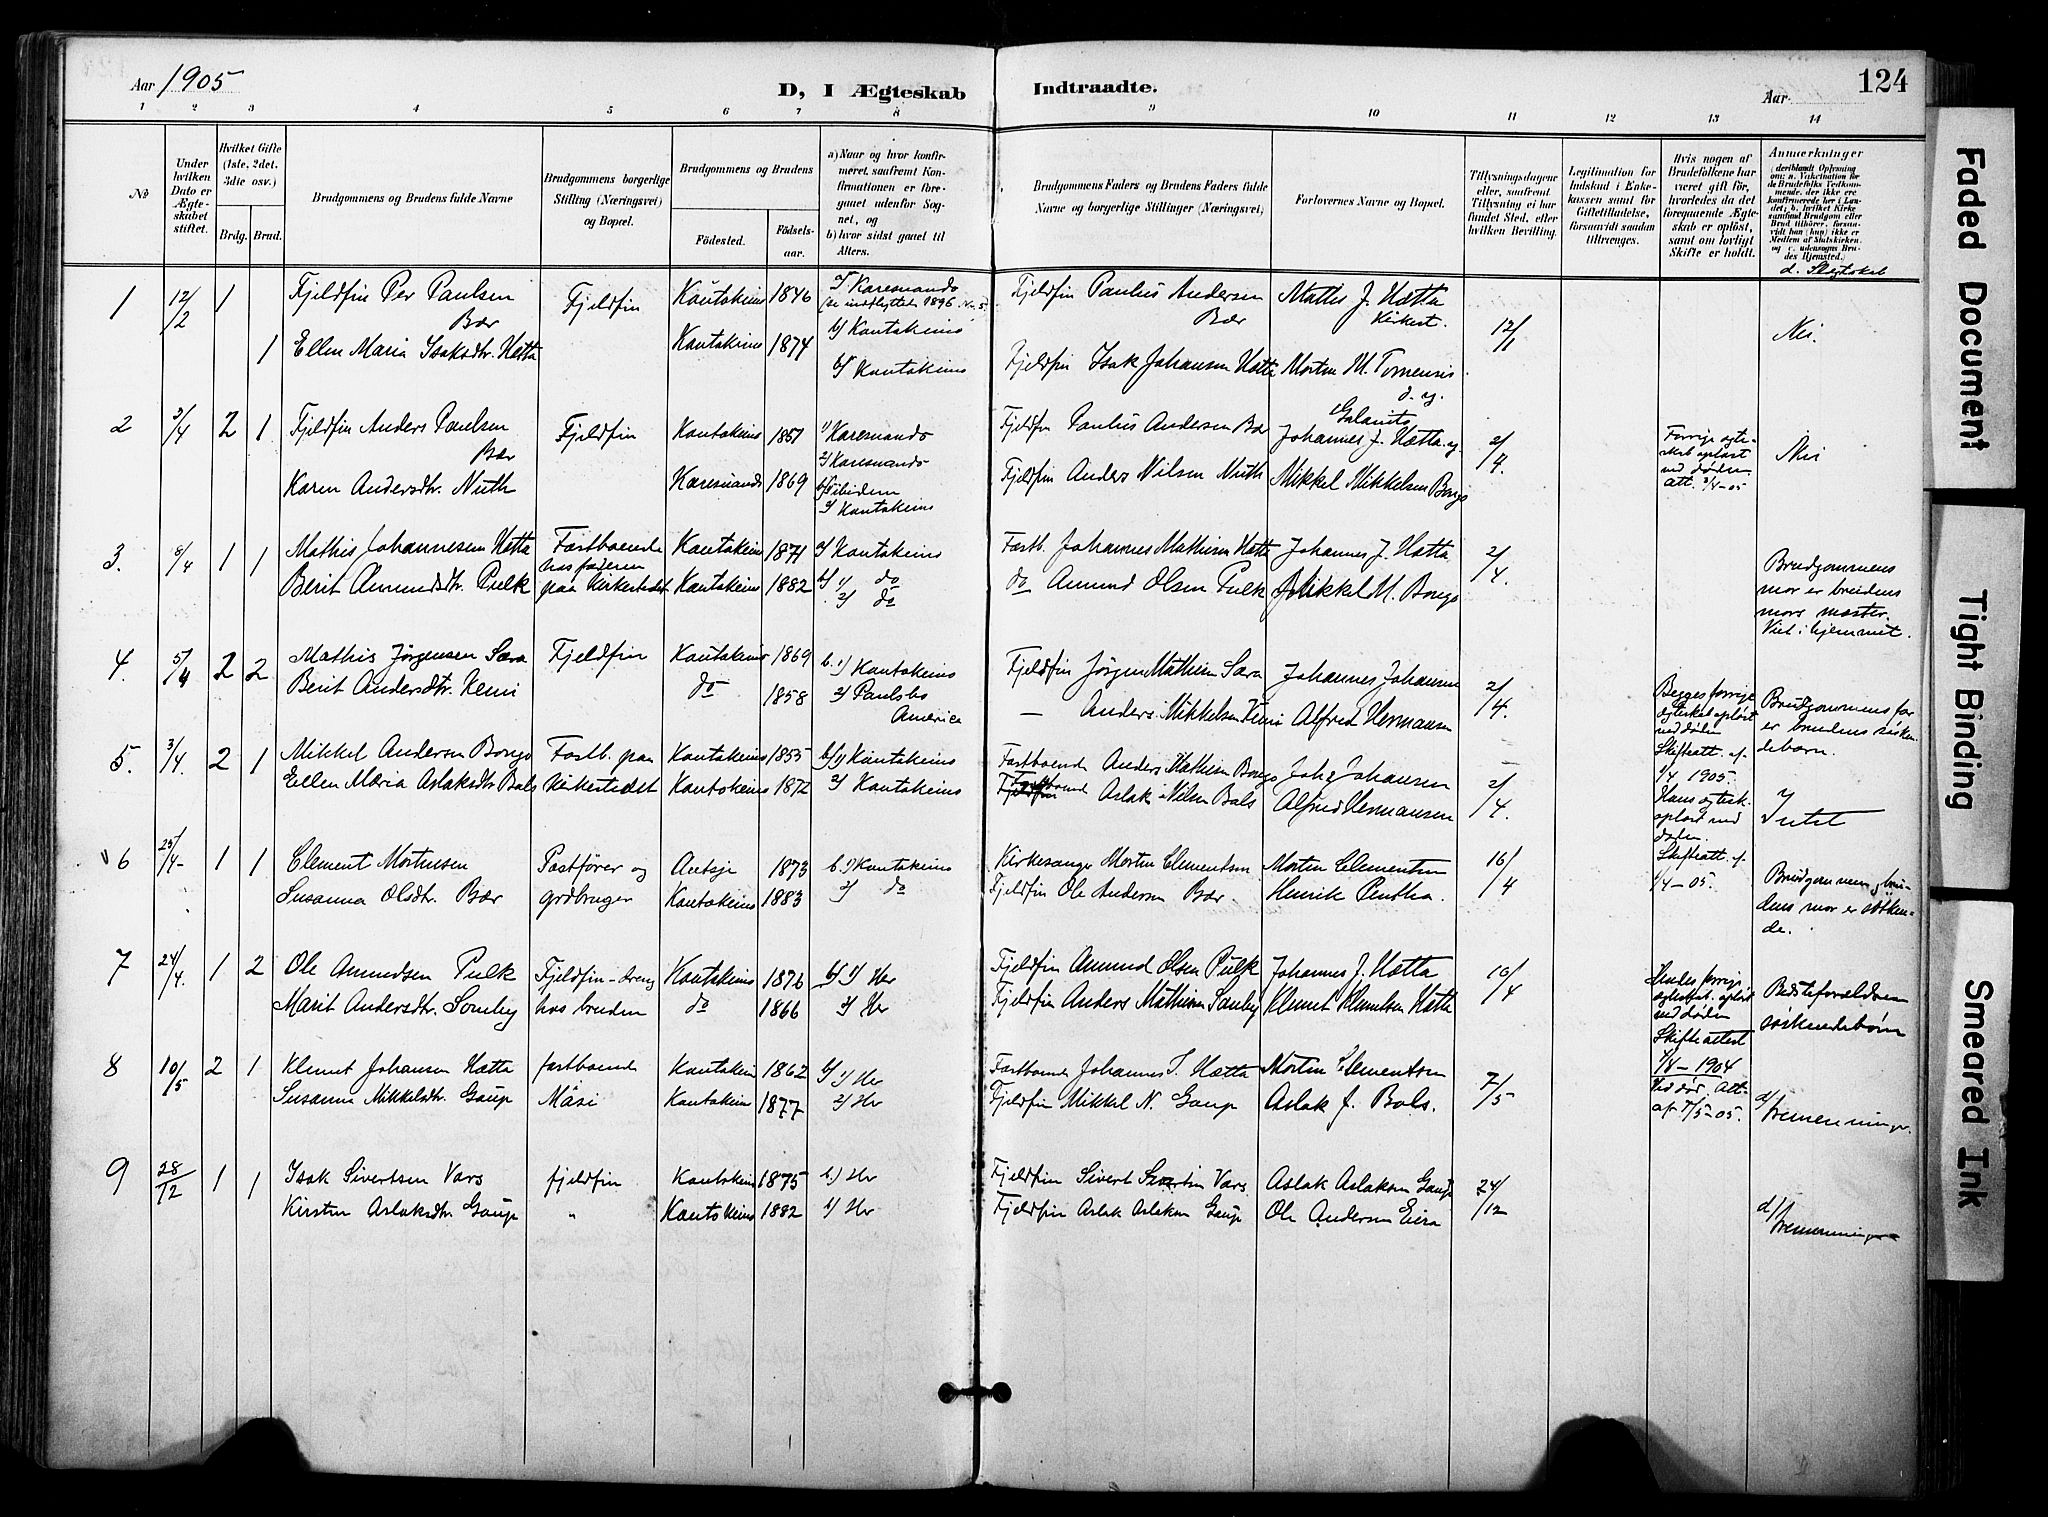 Aar 1905
D, I Ægteskab Indtraadte.
Aar 124
1 2 3 4 5 6 7 8 9 10 11 12 13 14
No
Under hvilken Dato er Ægteskabet stiftet.
Hvilket Gifte (1ste, 2det, 3die osv.)
Brdg. Brud.
Brudgommens og Brudens fulde Navne
Brudgommens borgerlige Stilling (Næringsvei) og Bopæl.
Brudgommens og Brudens
Födested. Födselsaar.
a) Naar og hvor konfirmeret, saafremt Konfirmationen er foregaaet udenfor Sognet, og
b) hvor sidst gaaet til Alters.
Brudgommens Faders og Brudens Faders fulde Navne og borgerlige Stillinger (Næringsvei)
Forlovernes Navne og Bopæl.
Tillysningsdagene eller, saafremt Tillysning ei har fundet Sted, efter hvilken Bevilling.
Legitimation for Indskud i Enkekassen samt for Giftetilladelse, forsaavidt saadan tiltrænges.
Hvis nogen af Brudefolkene har været gift før, hvorledes da det foregaaende Ægteskab er opløst, samt om lovligt Skifte er holdt.
Anmerkninger
(deriblandt Oplysning om: a. Vakcination for de Brudefolks Vedkommende, der ikke ere konfirmerede her i Landet; b. hvilket Kirkesamfund Brudgom eller Brud tilhører, forsaavidt han (hun) ikke er Medlem af Statskirken og c. udensogns Brudes Hjemsted.)
d. Slegtskab
1 12/2 1 Fjeldfin Per Paulsen Bær Fjeldfin Kautokeino 1846 Karesuando
(se indflyttede 1896 Nr. 5.
b/ Kautokeino
Fjeldfin Paulus Andersen Bær Mathis J. Hætta Kirkest. 12/1 Nei.
1 Ellen Maria Isaksdtr. Hætta Kautokeino 1874 Kautokeino Fjeldfin Isak Johansen Hætta Morten M. Tornensis
2 3/4 2 1 Fjeldfin Anders Paulsen Bær Fjeldfin Kautokeino 1857 1/ Karesuando
2/ Karesuando
Fjeldfin Paulus Andersen Bær Johannes J. Hætta og 2/4. Forrige ægteskab opløst ved døden Att. 3/4-05 Nei
Karen Andersdtr. Nuth Karesuando 1869 b/ ibidem
2/ Kautokeino
Fjeldfin Anders Nilsen Nuth Mikkel Mikkelsen Bongo
3. 8/4 1 1 Mathis Johannesen Hætta Fastboende hos faderen paa Kirkestedet Kautokeino 1871 Kautokeino Fastb. Johannes Mathisen Hætta Johannes J. Hætta 2/4. Brudgommens mor er brudens mors
Viet i hjemmet.
Berit Amundsdtr. Pulk Kautokeino 1882 b/ 1/ do
2/ do
do Amund Olsen Pulk Mikkel M. Bongo
4. 5/4 2 2 Mathis Jørgensen Sara Fjeldfin Kautokeino 1869 b. 1) Kautokeino Fjeldfin Jørgen Mathisen Sara Johannes Johansen 2/4. Begges forrige egteskab opløst ved døden Skifteatt. af 1/4 1905. Brudgommens far er brudens søskendebarn.
Berit Andersdtr. Kemi do 1858 2/ Paulsbo America — Anders Mikkelsen Kemi Alfred Hermansen
5. 3/4. 2 1 Mikkel Andersen Bongo Fastb. paa Kirkestedet Kautokeino 1855 b/ 1) Kautokeino Fastboende Anders Mathisen Bongo Joh. Johansen 2/4. Hans egtesk. opløst ved døden. Skifteatt. af 1/4-05. Intet
Ellen Maria Aslaksdtr Bals Kautokeino 1872 2/ Kautokeino Fastboende Aslak Nilsen Bals Alfred Hermansen
6 25/4- 1 1 Clement Mortensen Postfører og grdbruger Autsje 1873 b. 1) Kautokeino Kirkesanger Morten Clementsen Morten Clementsen 16/4 Brudgommen og brudens mor er søskende.
Susanna Olsdtr. Bær Kautokeino 1883 2/ do Fjeldfin Ole Andersen Bær Henrik Pentha.
7 24/4. 1 2 Ole Amundsen Pulk Fjeldfin-dreng hos bruden Kautokeino 1876 b/ 1) Her Fjeldfin Amund Olsen Pulk Johannes J. Hætta 16/4 Hendes forrige egteskab opløst ved døden Skifteattest 1/4-1904 Bedsteforældrene søskendebørn
Marit Andersdtr. Somby do 1866 2/ Her Fjeldfin Anders Mathisen Somby Klemet Klemetsen Hætta
8 10/5 2 1 Klemet Johansen Hætta fastboende Masi Kautokein 1862 b/ 1) Her Fastboende Johannes I. Hætta Morten Clementsen 7/5 Ved død. Att. af 7/5-05. d/ Fremmenninger.
Susanna Mikkelsdtr. Gaup Kautokein 1877 2/ Her Fjeldfin Mikkel N. Gaup Aslak J. Bals.
9 28/12 1 1 Isak Sivertsen Vars fjeldfin Kautokein 1875 b.) Her Fjeldfin Sivert Vars Aslak Aslaksen Gaup 24/12 d/
Kirsten Aslaksdtr. Gaup " Kautokeino 1882 1/ Her Fjeldfin Aslak Aslaksen Gaup Ole Andersen Eira
Faded Document
Tight Binding
Smeared Ink